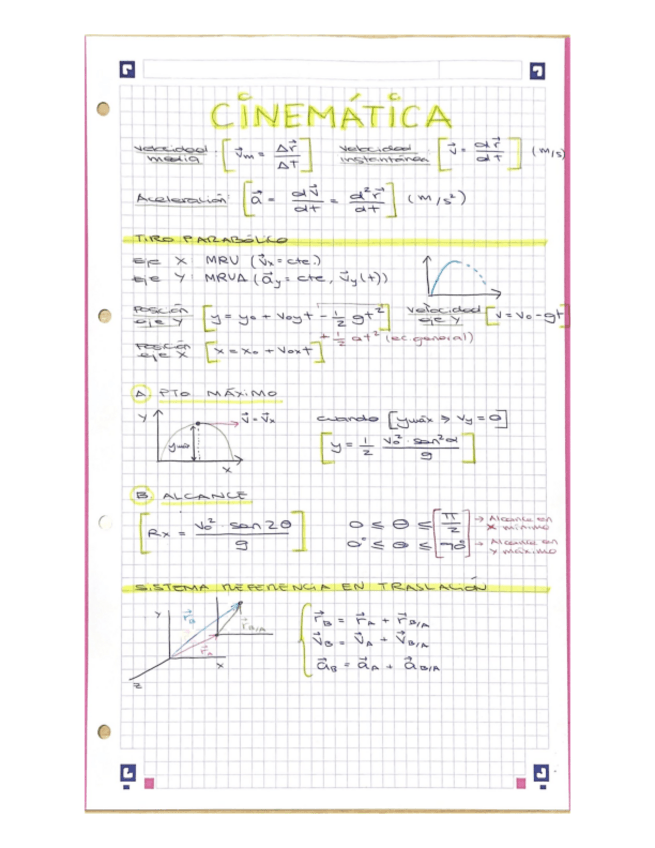 CINEMÁTICA
velocidad media: [v⃗m = Δr⃗/Δt] velocidad instantánea: [v⃗ = dr⃗/dt] (m/s)
Aceleración: [a⃗ = dv⃗/dt = d²r⃗/dt] (m/s²)
TIRO PARABÓLICO
eje X MRU (v⃗x = cte.)
eje Y: MRUA (a⃗y = cte, v⃗y(t))
Posición eje Y [y = y₀ + v₀yt - 1/2 gt²] velocidad eje Y [v = v₀ - gt]
+ 1/2 at² (ec. general)
Posición eje X [x = x₀ + v₀xt]
A PTO MÁXIMO
Y v⃗ = v⃗x cuando [ymáx → vy = 0]
ymáx [y = 1/2 v₀² · sen²α/g]
X
B. ALCANCE
[Rx = v₀² · sen 2θ/g] 0 ≤ θ ≤ [π/2] → Alcance en x mínimo
0° ≤ θ ≤ → Alcance en y máximo
SISTEMA REFERENCIA EN TRASLACIÓN
Y r⃗B r⃗B/A r⃗A X Z
r⃗B = r⃗A + r⃗B/A
v⃗B = v⃗A + v⃗B/A
a⃗B = a⃗A + a⃗B/A